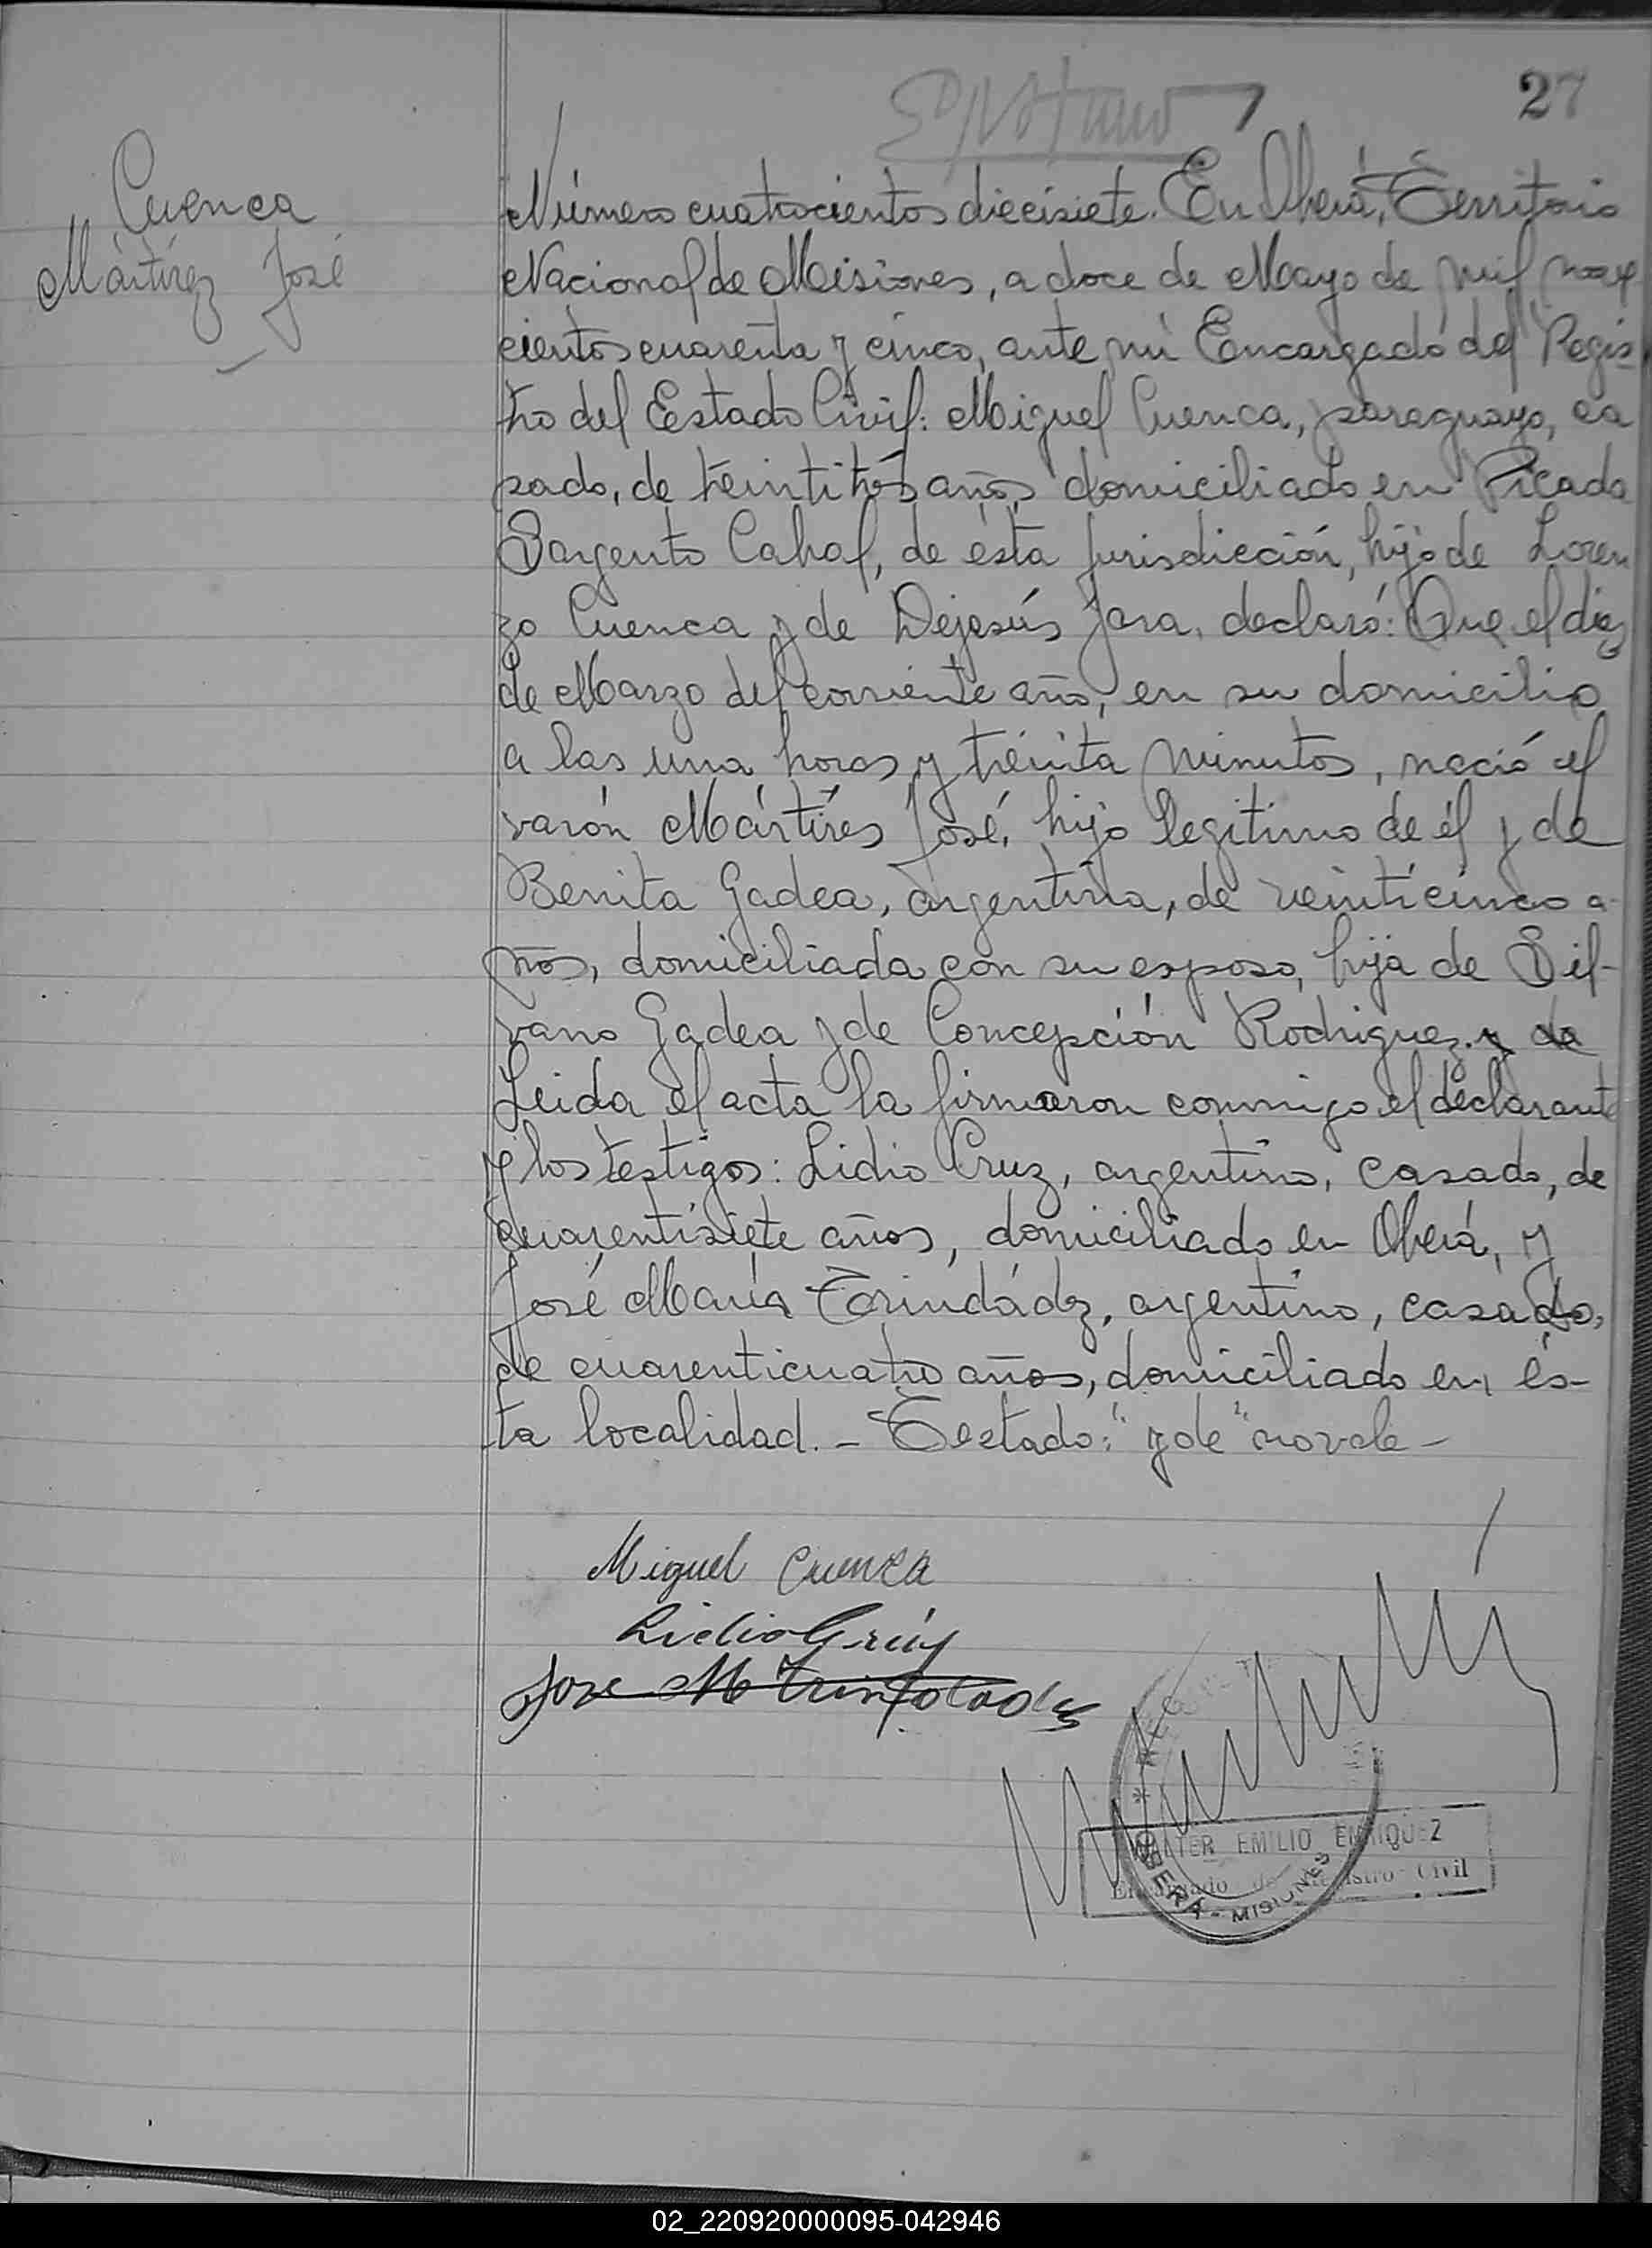 27
Cuenca
Mártirez José
Número cuatrocientos diecisiete. En Oberá, Territorio
Nacional de Misiones, a doce de Mayo de mil nove
cientos cuarenta y cinco, ante mí Encargado del Regis
tro del Estado Civil: Miguel Cuenca, paraguayo, ca
sado, de treintitrés años domiciliado en Picada
Sargento Cabral, de ésta jurisdicción, hijo de Loren
zo Cuenca y de Dejesús Jara, declaró: Que el diez
de Marzo del corriente año, en su domicilio
a las una horas y treinta minutos, nació el
varón Mártires José, hijo legitimo de él y de
Benita Gadea, argentina, de veinticinco a-
ños, domiciliada con su esposo, hija de Sil-
vano Gadea y de Concepción Rodriguez. y de
Leida el acta la firmaron conmigo el declarante
y los testigos: Lidio Cruz, argentino, casado, de
cuarentisiete años, domiciliado en Oberá, y
José María Trindádez, argentino, casado,
de cuarenticuatro años, domiciliado en és-
ta localidad. - Testado: "y de" no vale -
Miguel Cuenca
Lidio Cruz
Jose M Trindades
WALTER EMILIO ENRIQUEZ
Encargado del Registro Civil
OBERÁ - MISIONES
02_220920000095-042946